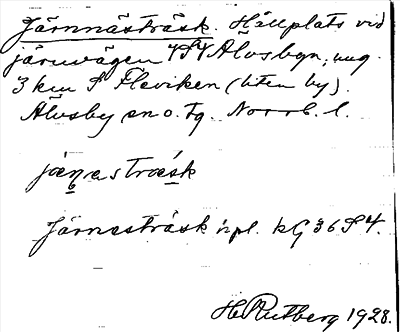 Järnnästräsk. Hållplats vid
järnvägen 4S4 Älvsbyn, ung.
3 km S Fleviken (liten by).
Älvsby sn o. tg. Norrb. l.
Järnesträsk npl. kG 36 S 4.
H Rutberg 1928.